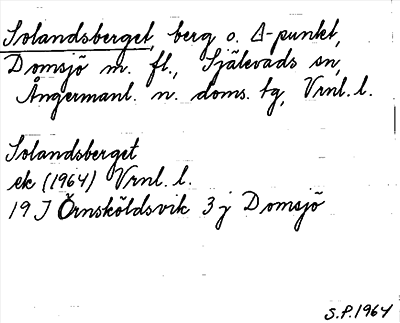 Solandsberget, berg o. Δ-punkt,
Domsjö m. fl., Själevads sn,
Ångermanl. n. doms. tg, Vrnl. l.
Solandsberget
ek (1964) Vrnl. l.
19 J Örnsköldsvik 3 j Domsjö
S.P. 1964